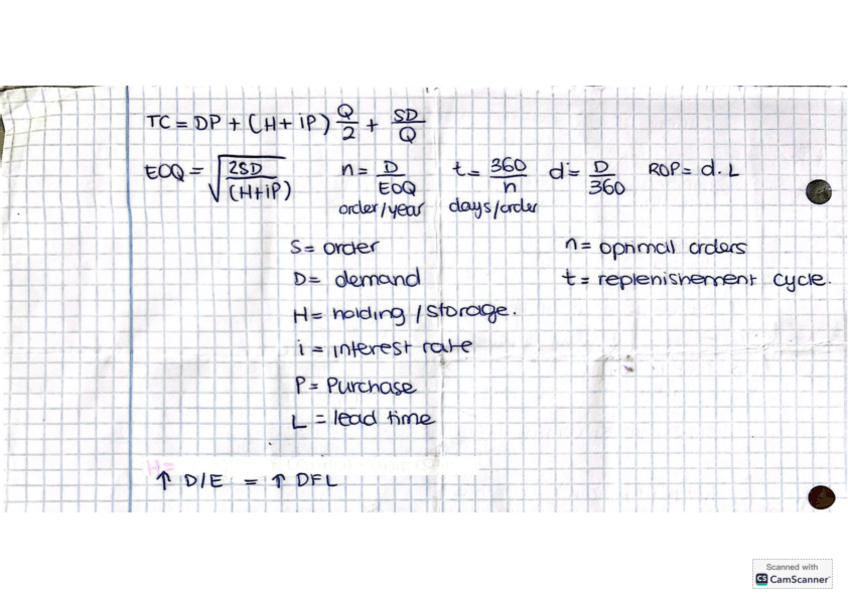 TC = DP + (H + iP) Q/2 + SD/Q
EOQ = √(2SD/(H+iP)) n = D/EOQ t = 360/n d = D/360 ROP = d.L
order/year days/order
S = order n = oprimal orders
D = demand t = replenishement cycle.
H = holding / storage.
i = interest rate
P = Purchase
L = lead time
H =
↑ D/E = ↑ DFL
Scanned with
CS CamScanner